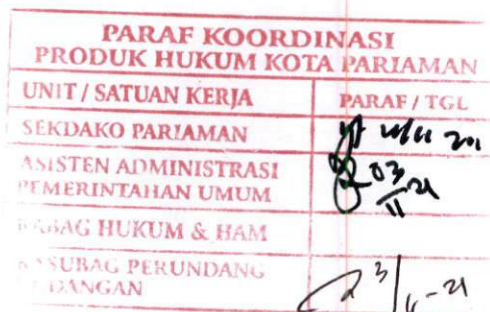 PARAF KOORDINASI
PRODUK HUKUM KOTA PARIAMAN
UNIT / SATUAN KERJA PARAF / TGL
SEKDAKO PARIAMAN
ASISTEN ADMINISTRASI 03
PEMERINTAHAN UMUM 11 21
HUKUM & HAM
PERUNDANG
3/11-21